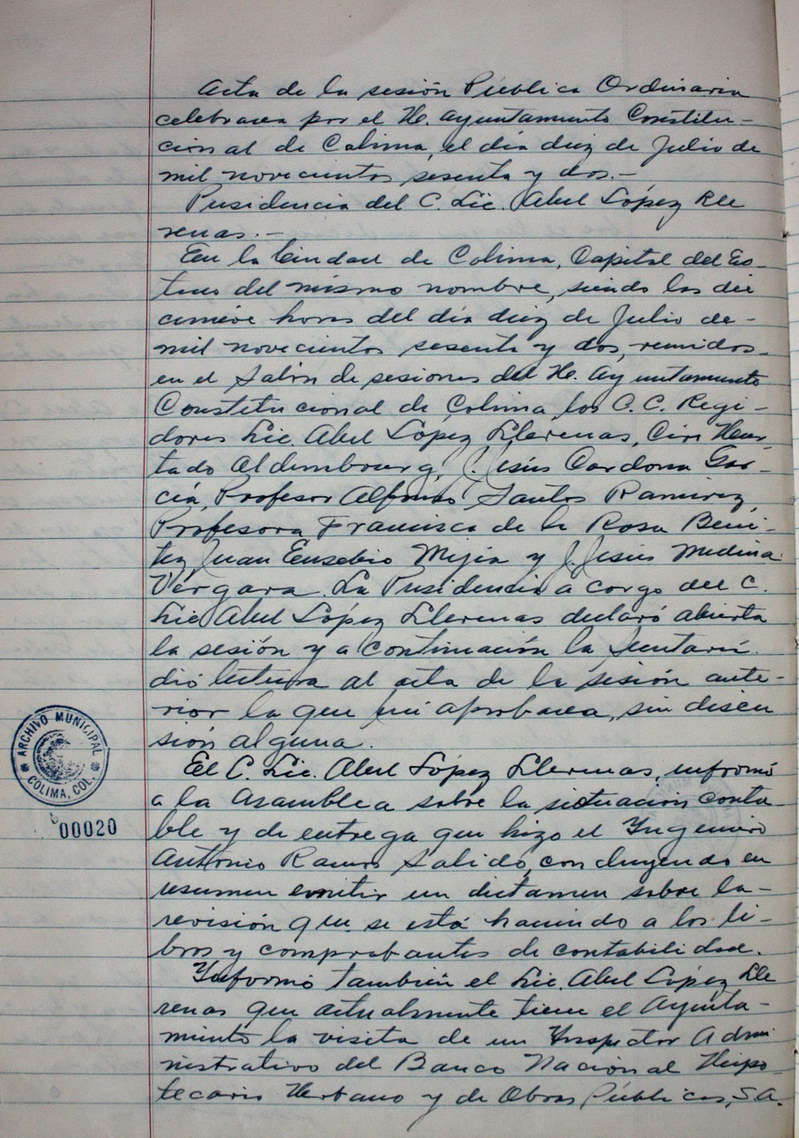 Acta de la sesión Pública Ordinaria
celebrada por el H. Ayuntamiento Constitu-
cional de Colima, el día diez de Julio de
mil novecientos sesenta y dos.-
Presidencia del C. Lic. Abel López Lle
renas.-
En la Ciudad de Colima, Capital del Es-
tado del mismo nombre, siendo las die
cinueve horas del día diez de Julio de-
mil novecientos sesenta y dos, reunidos-
en el Salón de sesiones del H. Ayuntamiento
Constitucional de Colima los C.C. Regi-
dores Lic. Abel López Llerenas, Ciro Hur-
tado Aldembourg, J. Jesús Cardona Gar-
cía, Profesor Alfonso Santos Ramírez,
Profesora Francisca de la Rosa Bení-
tez, Juan Eusebio Mejía y J. Jesús Medina
Vergara. La Presidencia a cargo del C.
Lic Abel López Llerenas declaró abierta
la sesión y a continuación la Secretaría
dió lectura al acta de la sesión ante-
rior la que fué aprobada, sin discu
sión alguna.
El C. Lic. Abel López Llerenas, informó
a la Asamblea sobre la situación conta-
ble y de entrega que hizo el Ingeniero
Antonio Ramos Salido, concluyendo en
resumen emitir un dictamen sobre la-
revisión que se está haciendo a los li-
bros y comprobantes de contabilidad.
Informó también el Lic. Abel López Lle
renas que actualmente tiene el Ayunta-
miento la visita de un Inspector Admi
nistrativo del Banco Nacional Hipo-
tecario Urbano y de Obras Públicas, S.A.
ARCHIVO MUNICIPAL
COLIMA, COL.
00020